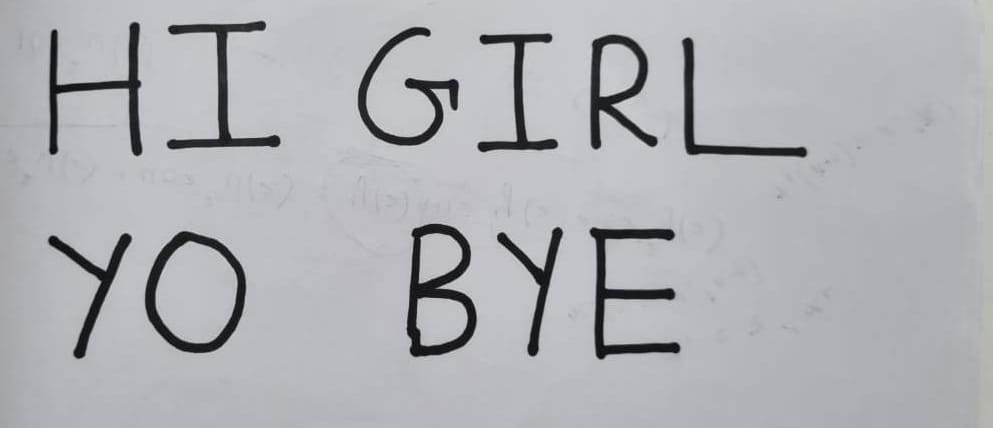 HI GIRL
YO BYE